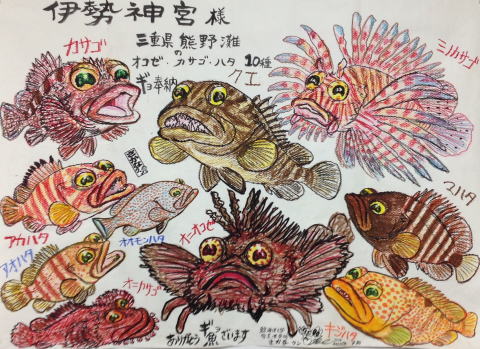 伊勢神宮 様
三重県熊野灘
の
オコゼ・カサゴ・ハタ 10種
ギョ奉納
カサゴ
クエ
ミノカサゴ
アカハタ
オオモンハタ
アオハタ
オニオコゼ
マハタ
オニカサゴ
キジハタ
ありがとうギョ魚ざいます